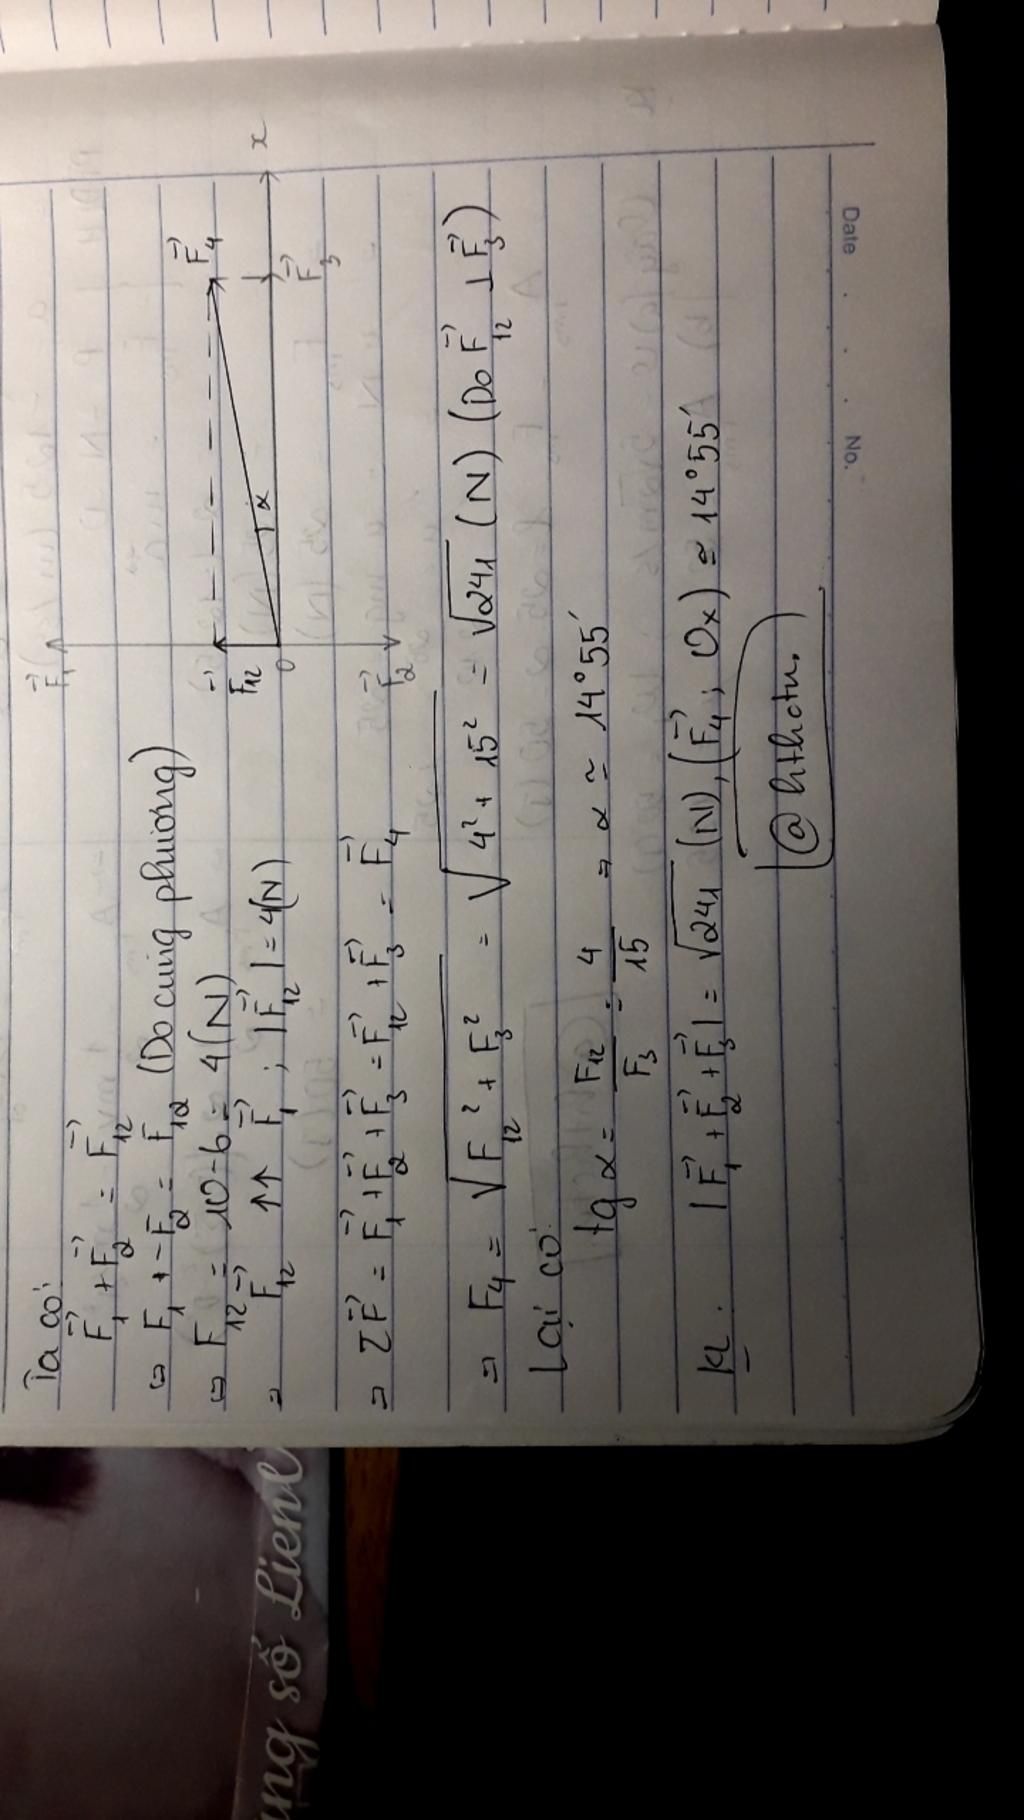 Ta có:
F₁→ + F₂→ = F₁₂→
⇔ F₁ + -F₂ = F₁₂ (Do cùng phương)
⇔ F₁₂ = 10-6 = 4(N)
⇒ F₁₂→ ↑↑ F₁→ ; |F₁₂→| = 4(N)
⇒ ΣF→ = F₁→ + F₂→ + F₃→ = F₁₂→ + F₃→ = F₄→
⇒ F₄ = √(F₁₂² + F₃²) = √(4² + 15²) = √241 (N) (Do F₁₂→ ⊥ F₃→)
Lại có:
tg α = F₁₂/F₃ = 4/15 ⇒ α ≃ 14°55'
KL. |F₁→ + F₂→ + F₃→| = √241 (N), (F₄→; Ox) ≃ 14°55'
@hthotn.
F₁→
F₄→
F₁₂→
α
x
O
F₃→
F₂→
No.
Date
số Liene